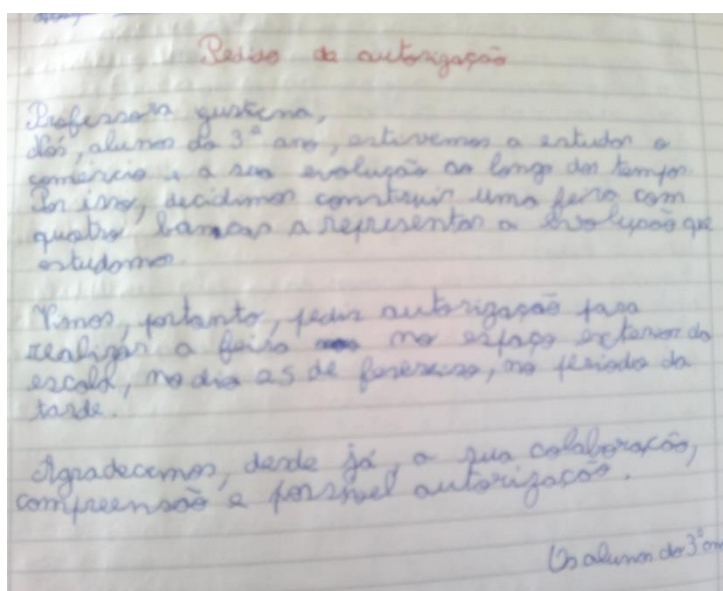 Pedido de autorização
Professora Justina,
Nós, alunos do 3º ano, estivemos a estudar o
comércio e a sua evolução ao longo dos tempos.
Por isso, decidimos construir uma feira com
quatro bancas a representar a evolução que
estudamos.
Vimos, portanto, pedir autorização para
realizar a feira no espaço exterior da
escola, no dia 25 de fevereiro, no período da
tarde.
Agradecemos, desde já, a sua colaboração,
compreensão e possível autorização.
Os alunos do 3º